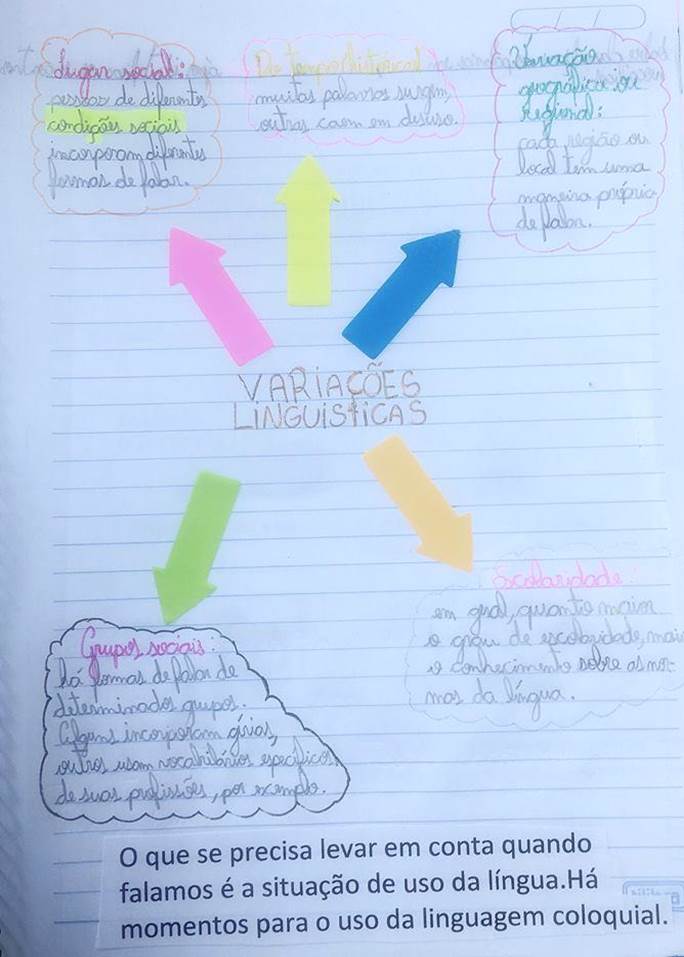 Lugar social:
pessoas de diferentes
condições sociais
incorporam diferentes
formas de falar.
Do tempo (histórica)
muitas palavras surgem,
outras caem em desuso.
Variação
geográfica ou
regional:
cada região ou
local tem uma
maneira própria
de falar.
VARIAÇÕES
LINGUISTICAS
Escolaridade:
em geral, quanto maior
o grau de escolaridade, mai
o conhecimento sobre as nor-
mas da língua.
Grupos sociais:
há formas de falar de
determinados grupos.
Alguns incorporam gírias,
outros usam vocabulários específicos
de suas profissões, por exemplo.
O que se precisa levar em conta quando
falamos é a situação de uso da língua.Há
momentos para o uso da linguagem coloquial.